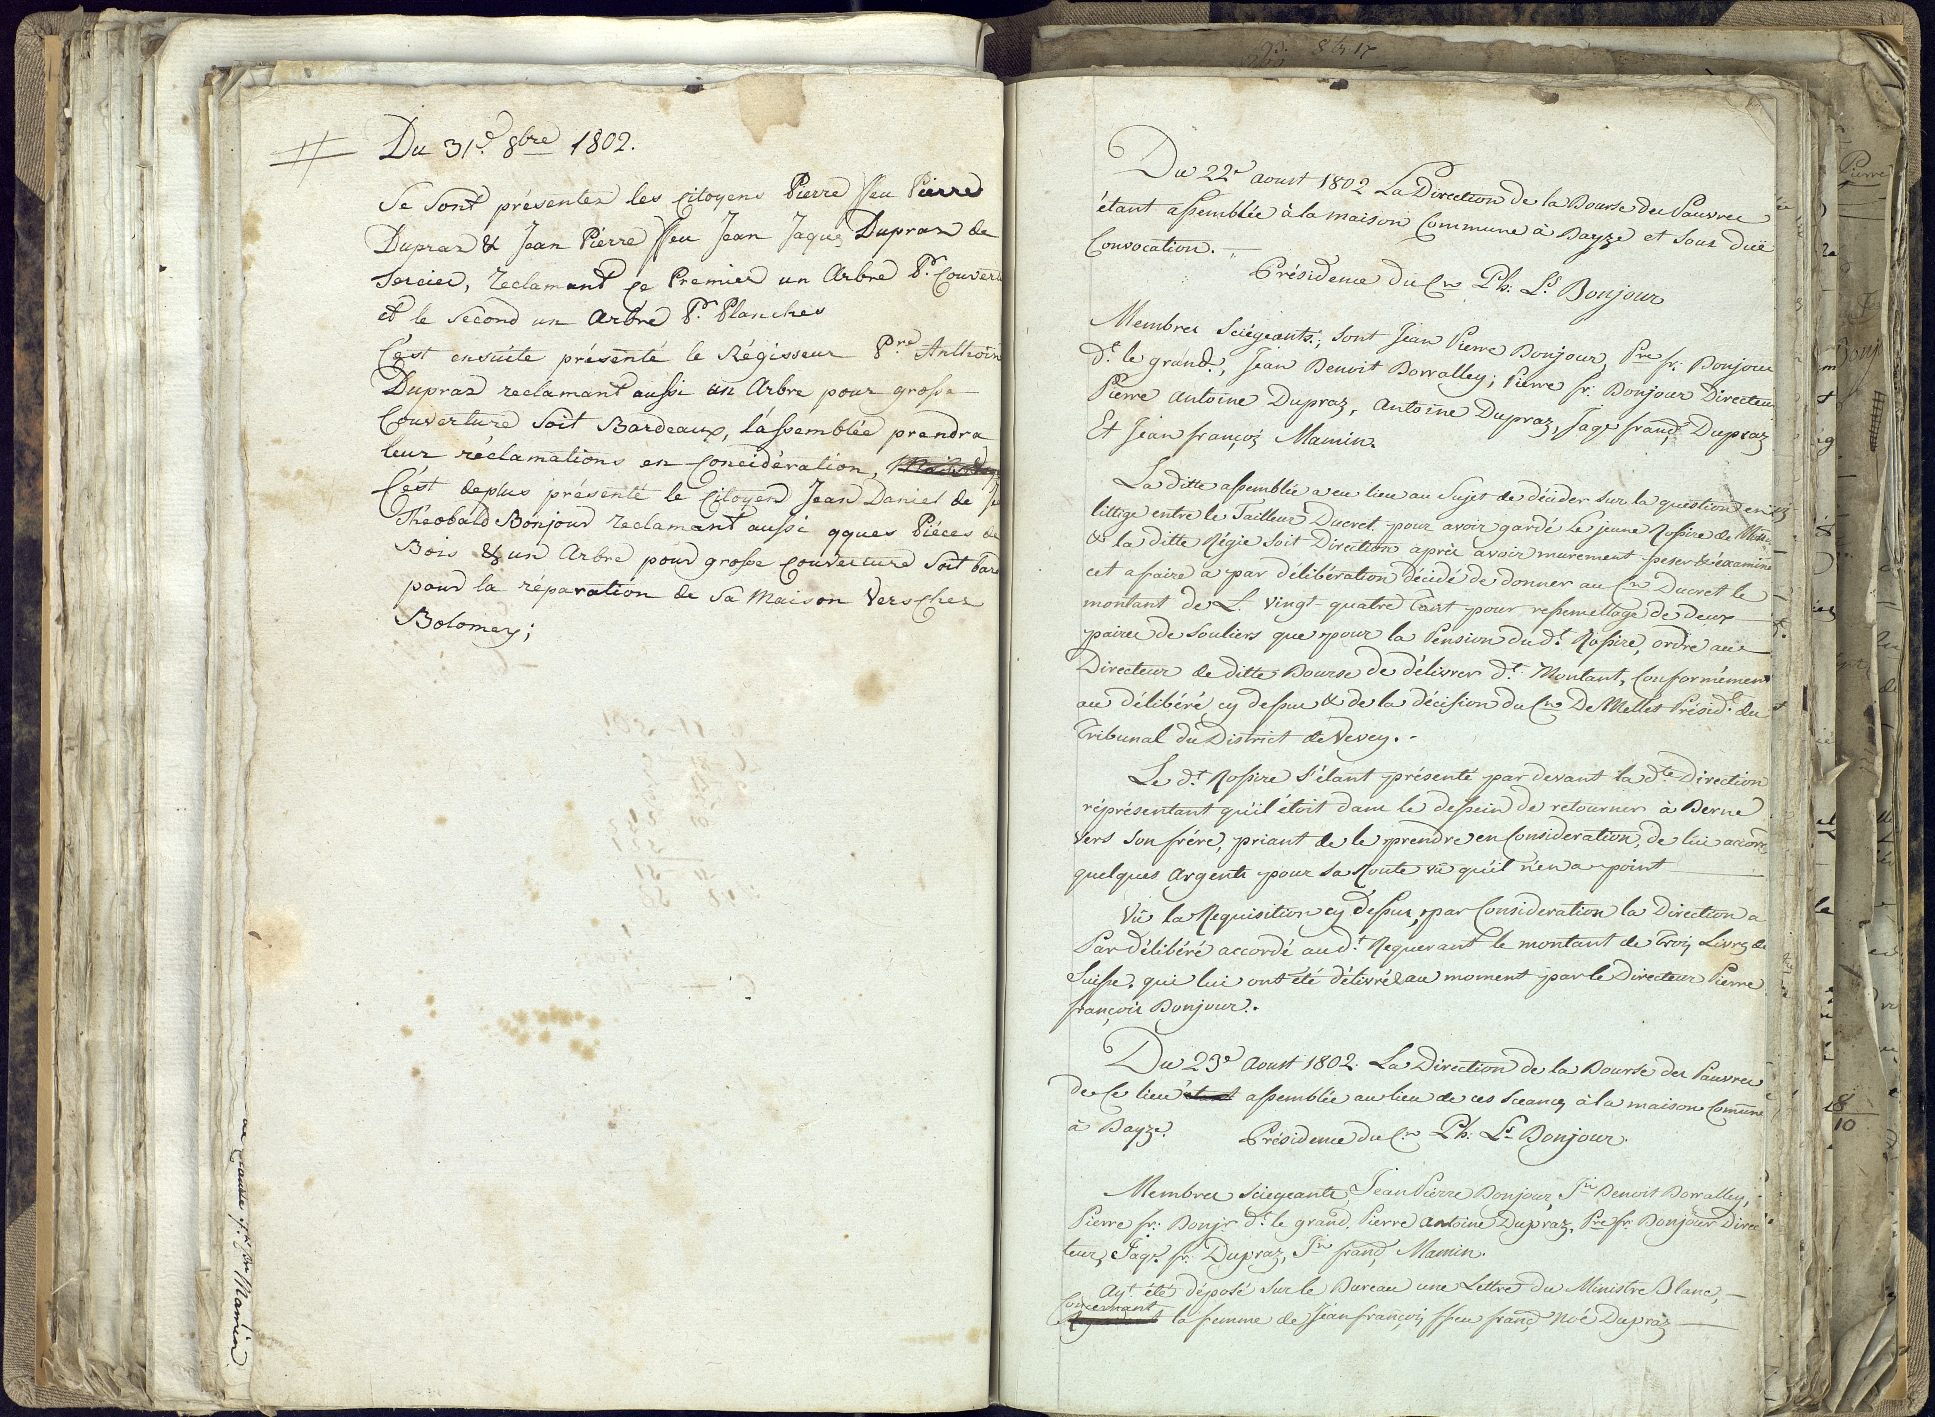 Du 31.e 8bre 1802.
Se Sont présentez les Citoyens Pierre ffeu Pierre
Dupraz & Jean Pierre ffeu Jean Jaques Dupraz de
Sercier, reclamant Le Premier un Arbre Pr. Couvert
et le Second un Arbre Pr. Planches
C'est ensuite présenté le Régisseur Pre. Anthoin
Dupraz reclamant aussi un Arbre pour grosse
Couverture Soit Bardeaux, l'assemblée prendra
leur réclamations en Concidération,
C'est deplus présenté le Citoyen Jean Daniel de
Théobald Bonjour reclamant aussi qques Piéces de
Bois & un Arbre pour grosse couverture Soit bard
pour la réparation de Sa Maison Vers Chez
Bolomey;
Du 22e aoust 1802 La Direction de la Bourse des Pauvres
étant assemblée à la maison Commune à Bayze et Sous düe
Convocation.
Présidence du Cn Ph: Ls. Bonjour
Membres Sciégeants; sont Jean Pierre Bonjour, Pre fr: Bonjour
Dt. le grand; Jean Benoit Borralley; Pierre fr: Bonjour Directeur
Pierre antoine Dupraz, antoine Dupraz, Jaqe françs Dupraz
Et Jean françois Mamin.
La ditte assemblée a eu lieu au Sujet de décider Sur la question en
littige entre le Tailleur Ducret pour avoir gardé le jeune Rossire de
& la ditte Régie Soit Direction après avoir murement peser & éxaminé
cet afaire a par délibération décidé de donner au Cn Ducret le
montant de L. vingt-quatre Tant pour ressemellage de deux
paires de Souliers que pour la Pension du dt. Rossire, ordre au
Directeur de ditte Bourse de délivrer dt. Montant, Conformément
au délibéré cy dessus & de la décision du Cn DeMellet Présidt. du
Tribunal du District de Vevey. -
Le dt Rossire S'étant présenté par devant la dte Direction
réprésentant qu'il étoit dans le dessein de retourner à Berne
Vers Son frére, priant de le prendre en Consideration, de lui accord
quelques Argents pour Sa Route vû qu'il n'en a point
Vû la Requisition cy dessus, par Consideration la Direction a
Par délibéré accordé au dt Requerant le montant de Trois Livres de
Suisse, qui lui ont été délivré au moment par le Directeur Pierre
françois Bonjour.
Du 23e Aoust 1802. La Direction de la Bourse des Pauvres
de Ce lieu étant assemblée au lieu de ces Sceances à la maison Comune
à Bayze. Présidence du Cn Ph: Ls Bonjour.
Membres Sciegeants, Jean Pierre Bonjour Jn Benoit Borralley,
Pierre fr: Bonjr dt. le grand, Pierre antoine Dupraz, Pre fr. Bonjour Direc
teur, Jaqe. fr. Dupraz, Jn françs Mamin.
ayt été déposé Sur le Bureau une Lettre du Ministre Blanc,
Concernant
la femme de Jean françois ffeu françs Noé Dupraz